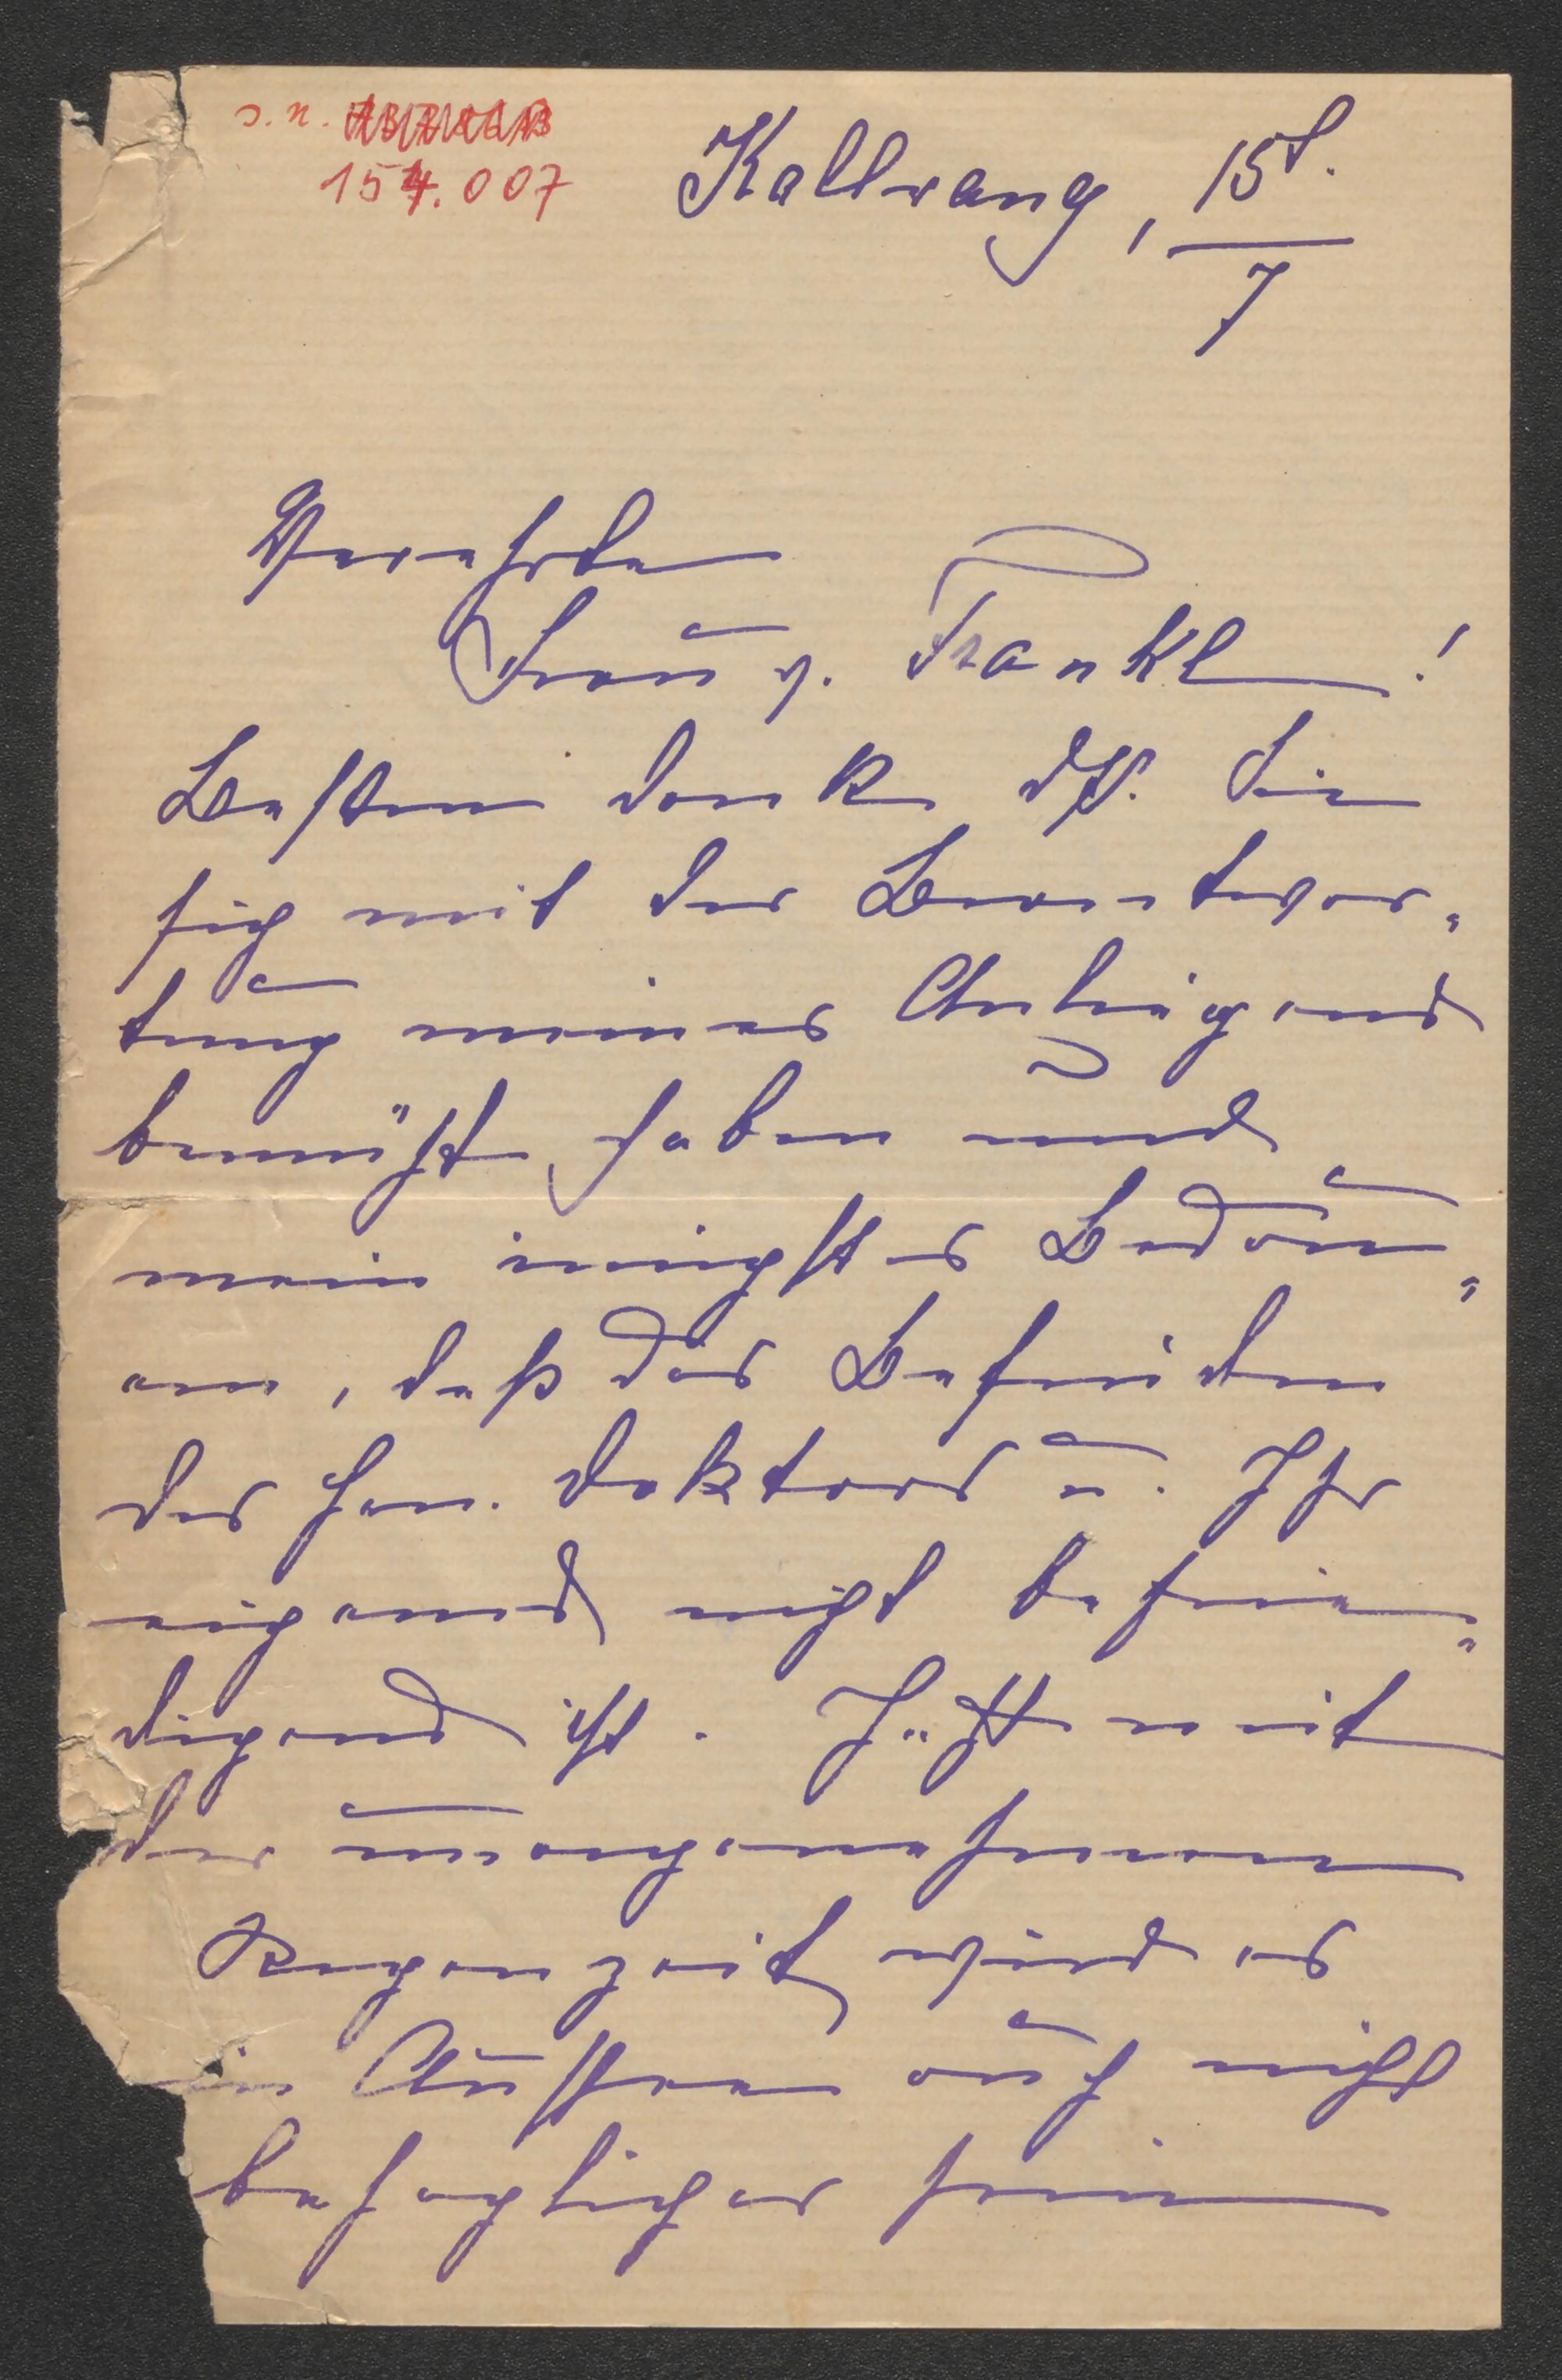 s. n.
154.007
Kallwang, 15t.
7
Verehrte
Frau v. Frankl!
Besten Dank dß. Sie
sich mit der Beantwor„
tung meines Anliegens
bemüht haben und
mein innigstes Bedau„
ern, daß das Befinden
des Hrn. Doktors u. Ihr
eigenes nicht befrie„
digend ist. Jetzt mit
der unangenehmen
Regenzeit wird es
in Aussee auch nicht
behaglicher sein